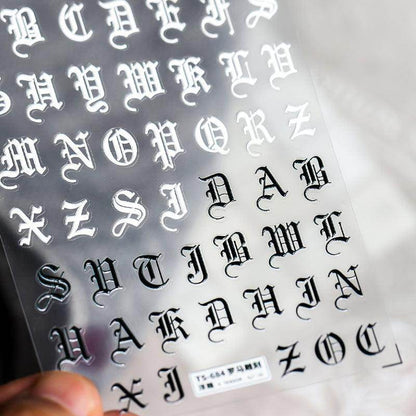 B C D E F S
H Y W K L V
M N O P Q R Z
X Z S I D A B
S V T I B W L
H A K D H I N
X I Z O C
TS-684 罗马雕刻
浮雕